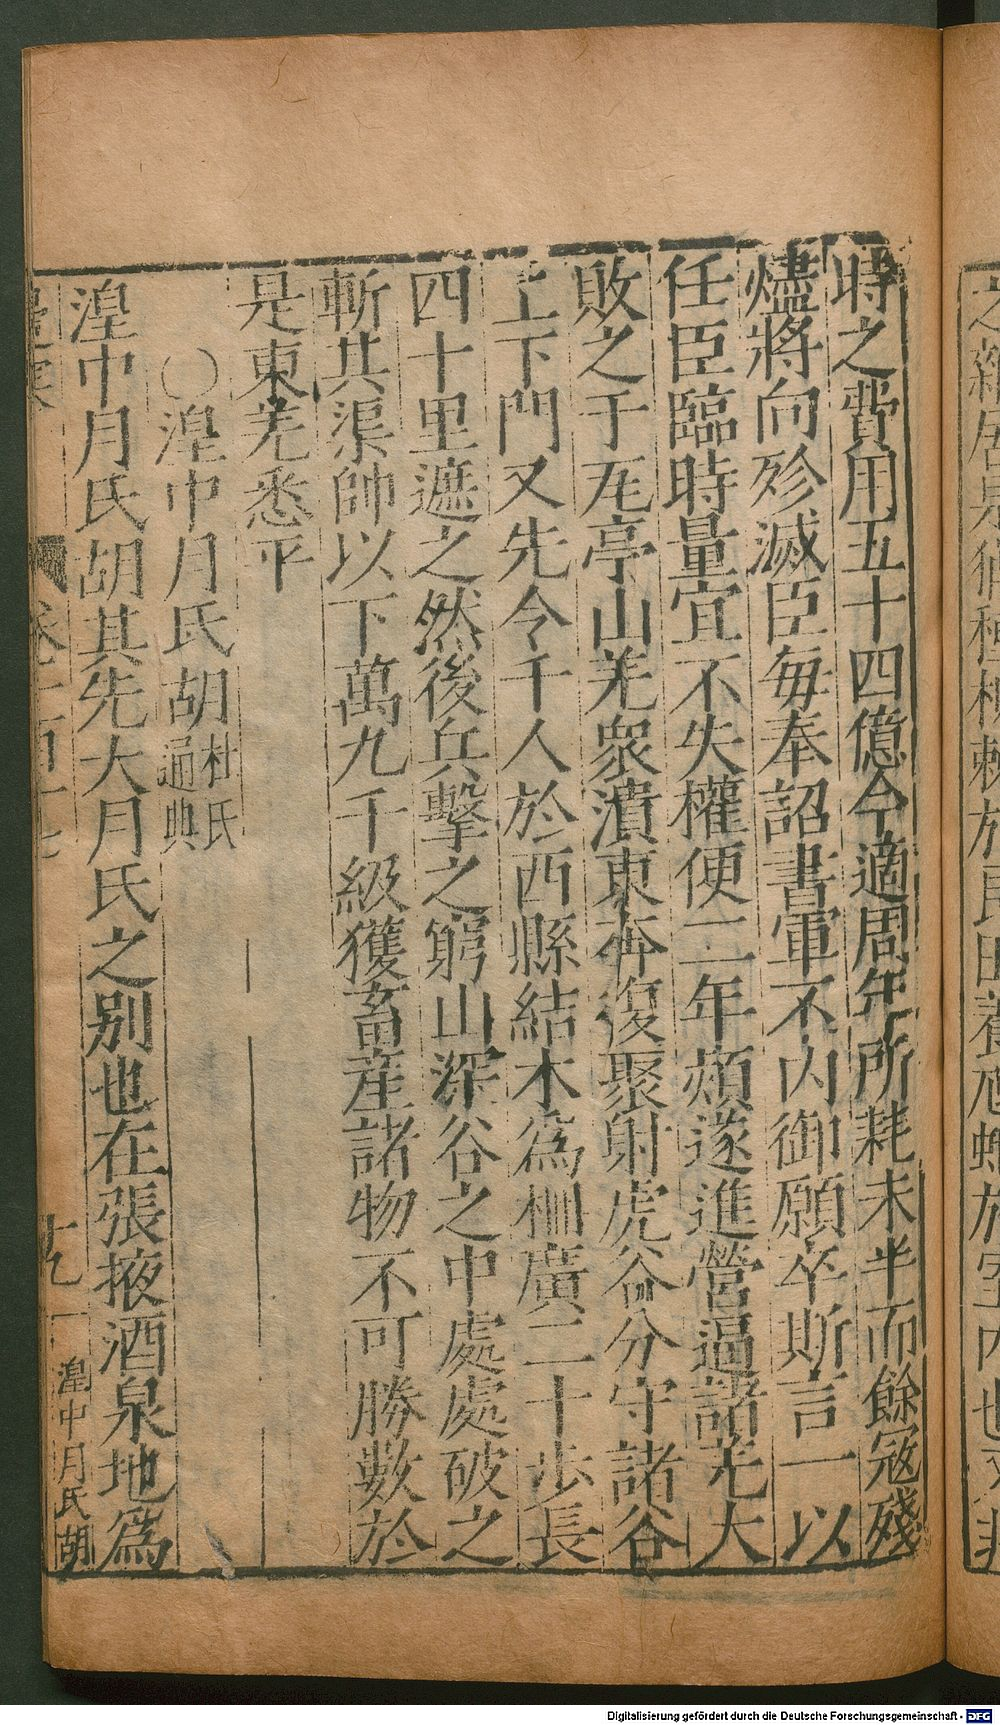 時之費用五十四億今適周年所耗未半而餘冦殘
燼將向殄滅臣每奉詔書軍不內御願卒斯言一以
任臣臨時量宜不失權便二年頻遂進營逼諸羌大
敗之于瓦亭山羌衆潰東奔復聚射虎谷分守諸谷
上下門又先令千人於西縣結木爲柵廣二十步長
四十里遮之然後兵擊之窮山深谷之中處處破之
斬其渠帥以下萬九千級獲畜產諸物不可勝數於
是東羌悉平
○湟中月氏胡 杜氏通典
湟中月氏胡其先大月氏之別也在張掖酒泉地爲
湟中月氏胡
Digitalisierung gefördert durch die Deutsche Forschungsgemeinschaft - DFG